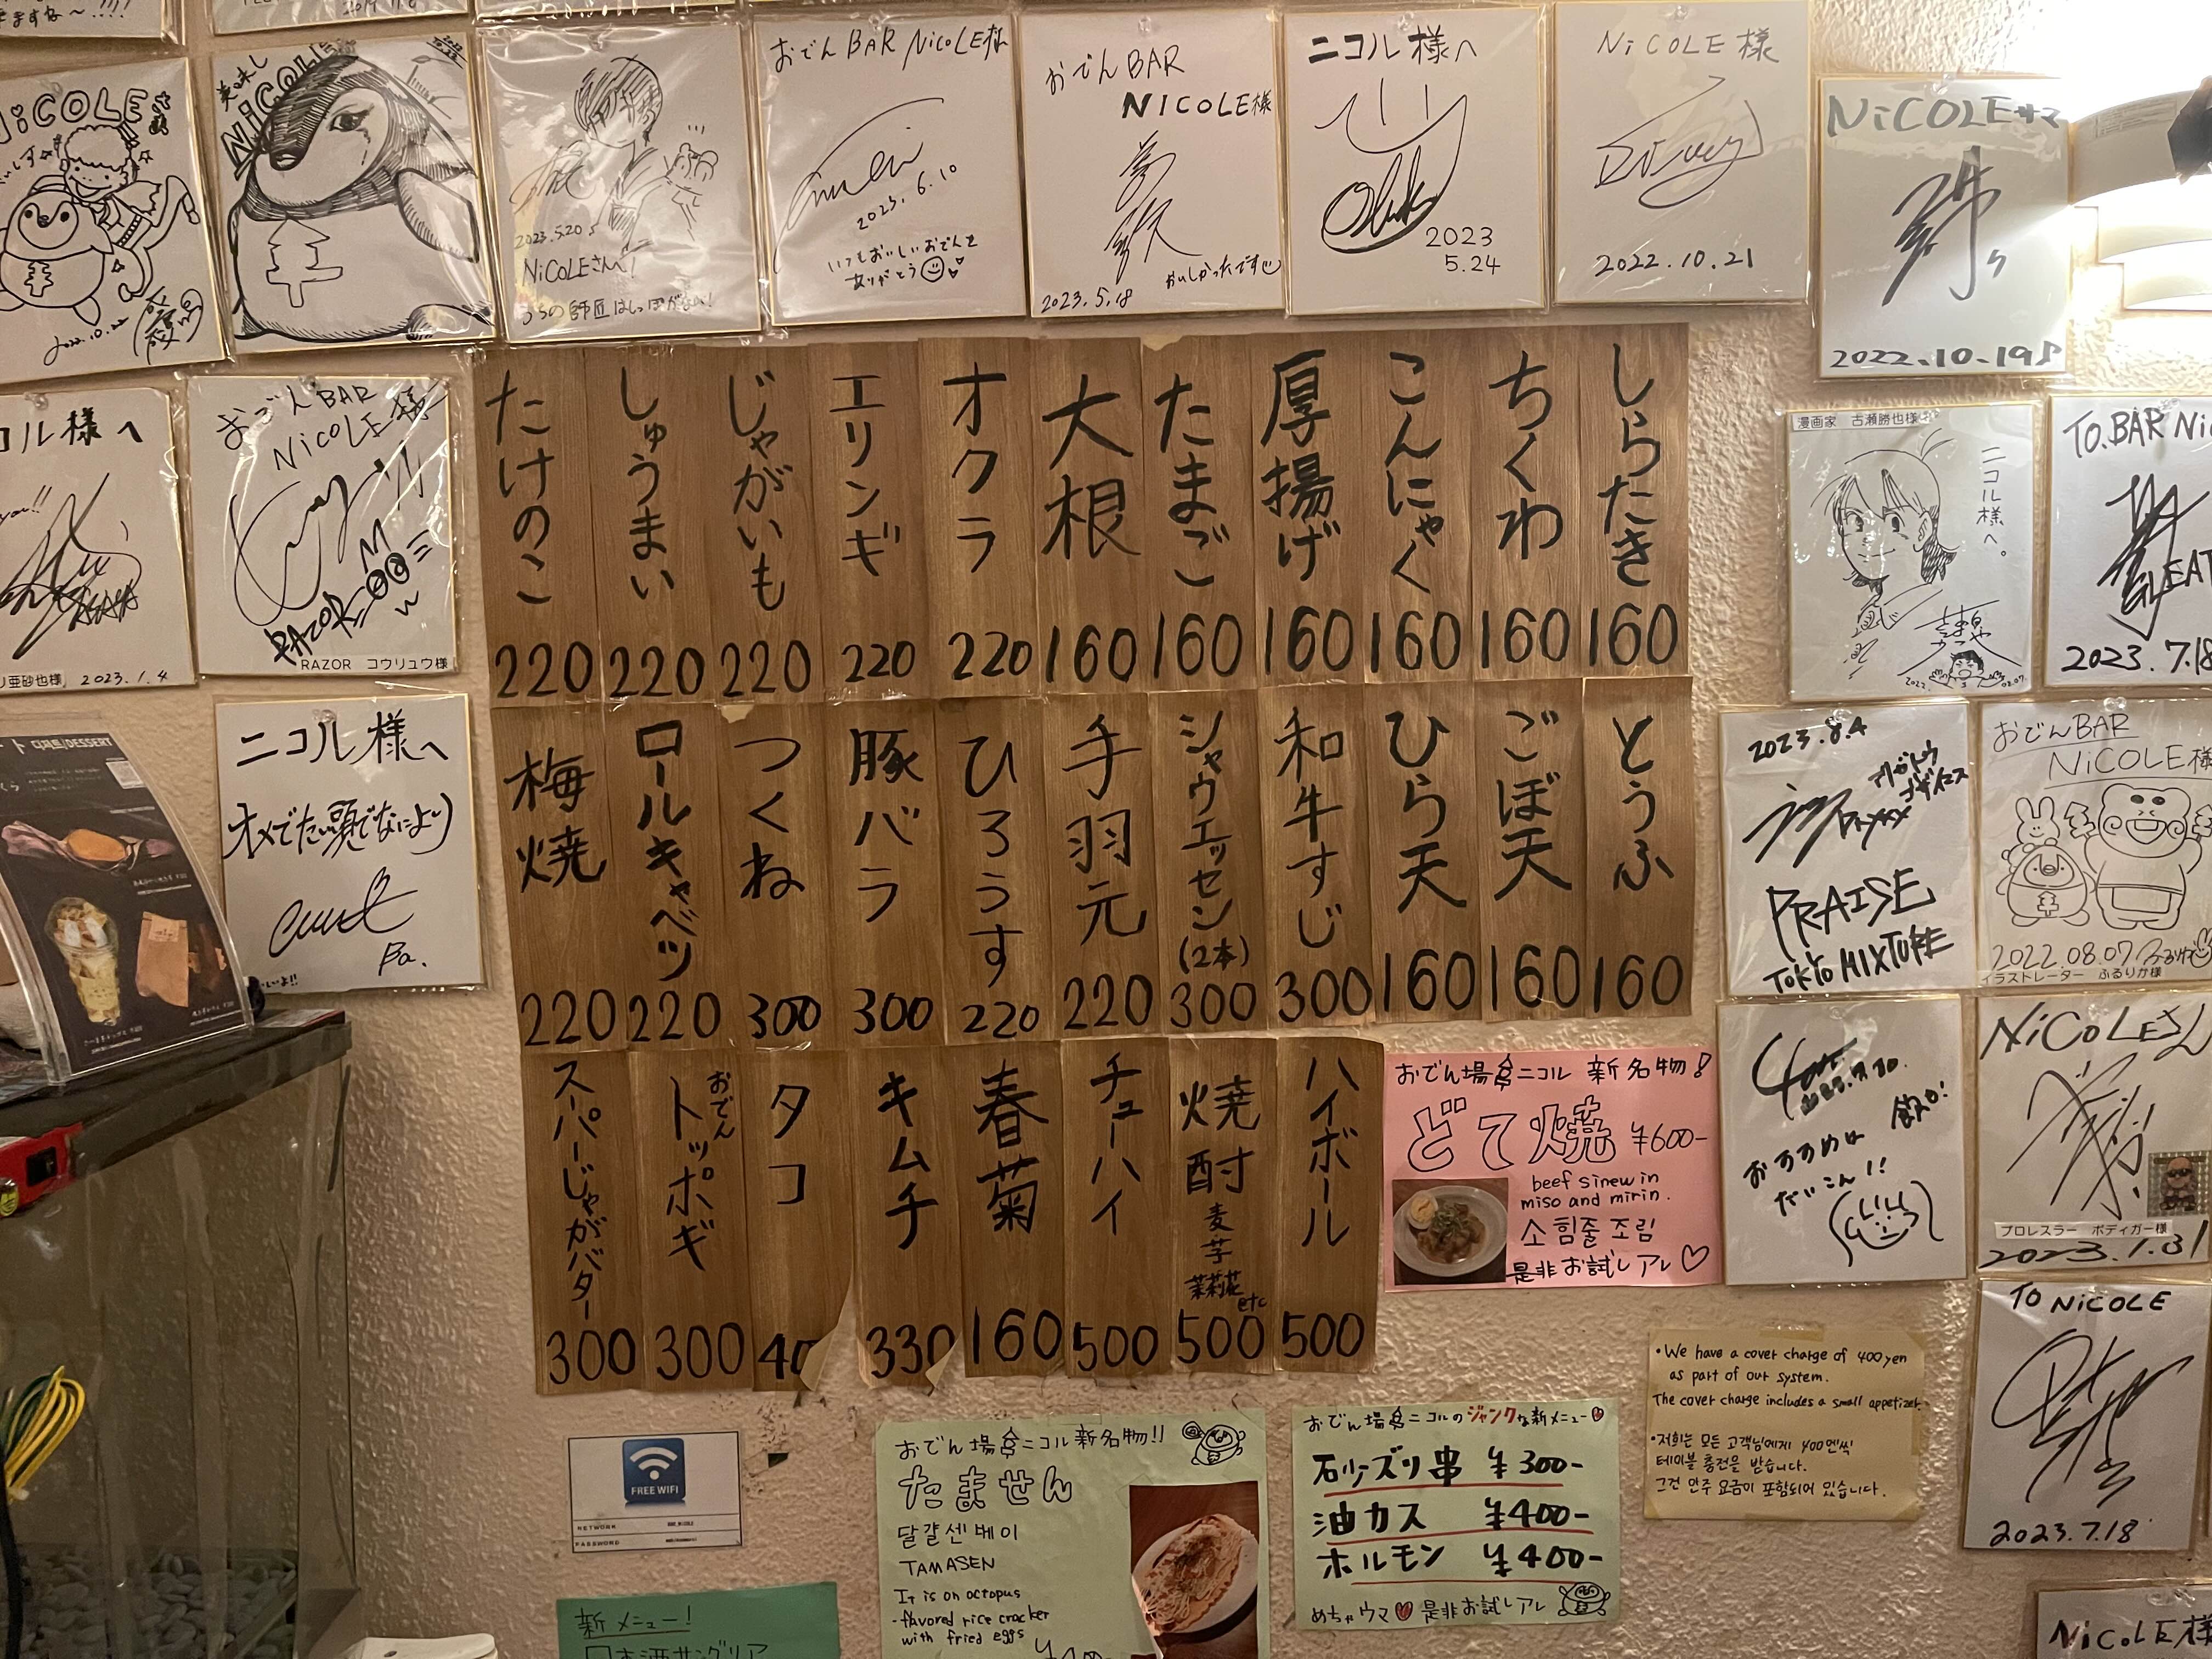 NiCOLEさん
美味し
NiCOLE
2023.5.20
NiCOLEさんへ!
うちの師匠はしっぽがない!
おでんBAR NiCOLE様
2023.6.10
いつもおいしいおでんを
ありがとう
おでんBAR
NICOLE様
2023.5.18
おいしかったです
ニコル様へ
2023
5.24
NiCOLE様
2022.10.21
NiCOLEサマ
2022.10.19
コル様へ
2023.1.4
おでんBAR
NiCOLE様
RAZOR
RAZOR コウリュウ様
ニコル様へ
オメでたい頭でなにより
Ba.
DESSERT
しらたき
160
ちくわ
160
こんにゃく
160
厚揚げ
160
たまご
160
大根
160
オクラ
220
エリンギ
220
じゃがいも
220
しゅうまい
220
たけのこ
220
とうふ
160
ごぼ天
160
ひら天
160
和牛すじ
300
シャウエッセン(2本)
300
手羽元
220
ひろうす
220
豚バラ
300
つくね
300
ロールキャベツ
220
梅焼
220
ハイボール
500
焼酎
麦
芋
茉莉花
etc
500
チューハイ
500
春菊
160
キムチ
330
タコ
40
おでん
トッポギ
300
スーパーじゃがバター
300
おでん場るニコル 新名物!
どて焼 ¥600-
beef sinew in
miso and mirin.
소 힘줄 조림
是非お試しアレ♡
漫画家 古瀬勝也様
ニコル様へ。
TO.BAR Ni
GLEAT
2023.7.18
2023.8.4
アリガトウ
ゴザイマス
PRAISE
TOKYO MIXTURE
おでんBAR
NiCOLE様
2022.08.07
イラストレーター ふるりか様
おすすめは
だいこん!!
NiCOLEさん
プロレスラー ボディガー様
2023.1.31
TO NiCOLE
2023.7.18
NiCOLE様
・We have a cover charge of 400yen
as part of our system.
The cover charge includes a small appetizer.
・저희는 모든 고객님에게 400엔씩
테이블 충전을 받습니다.
그건 안주 요금이 포함되어 있습니다.
FREE WIFI
NETWORK
PASSWORD
おでん場るニコル新名物!!
たません
달걀센베이
TAMASEN
It is on octopus
-flavored rice cracker
with fried eggs
おでん場るニコルのジャンクな新メニュー
砂ズリ串 ¥300-
油カス ¥400-
ホルモン ¥400-
めちゃウマ 是非お試しアレ
新メニュー!
日本酒サングリア